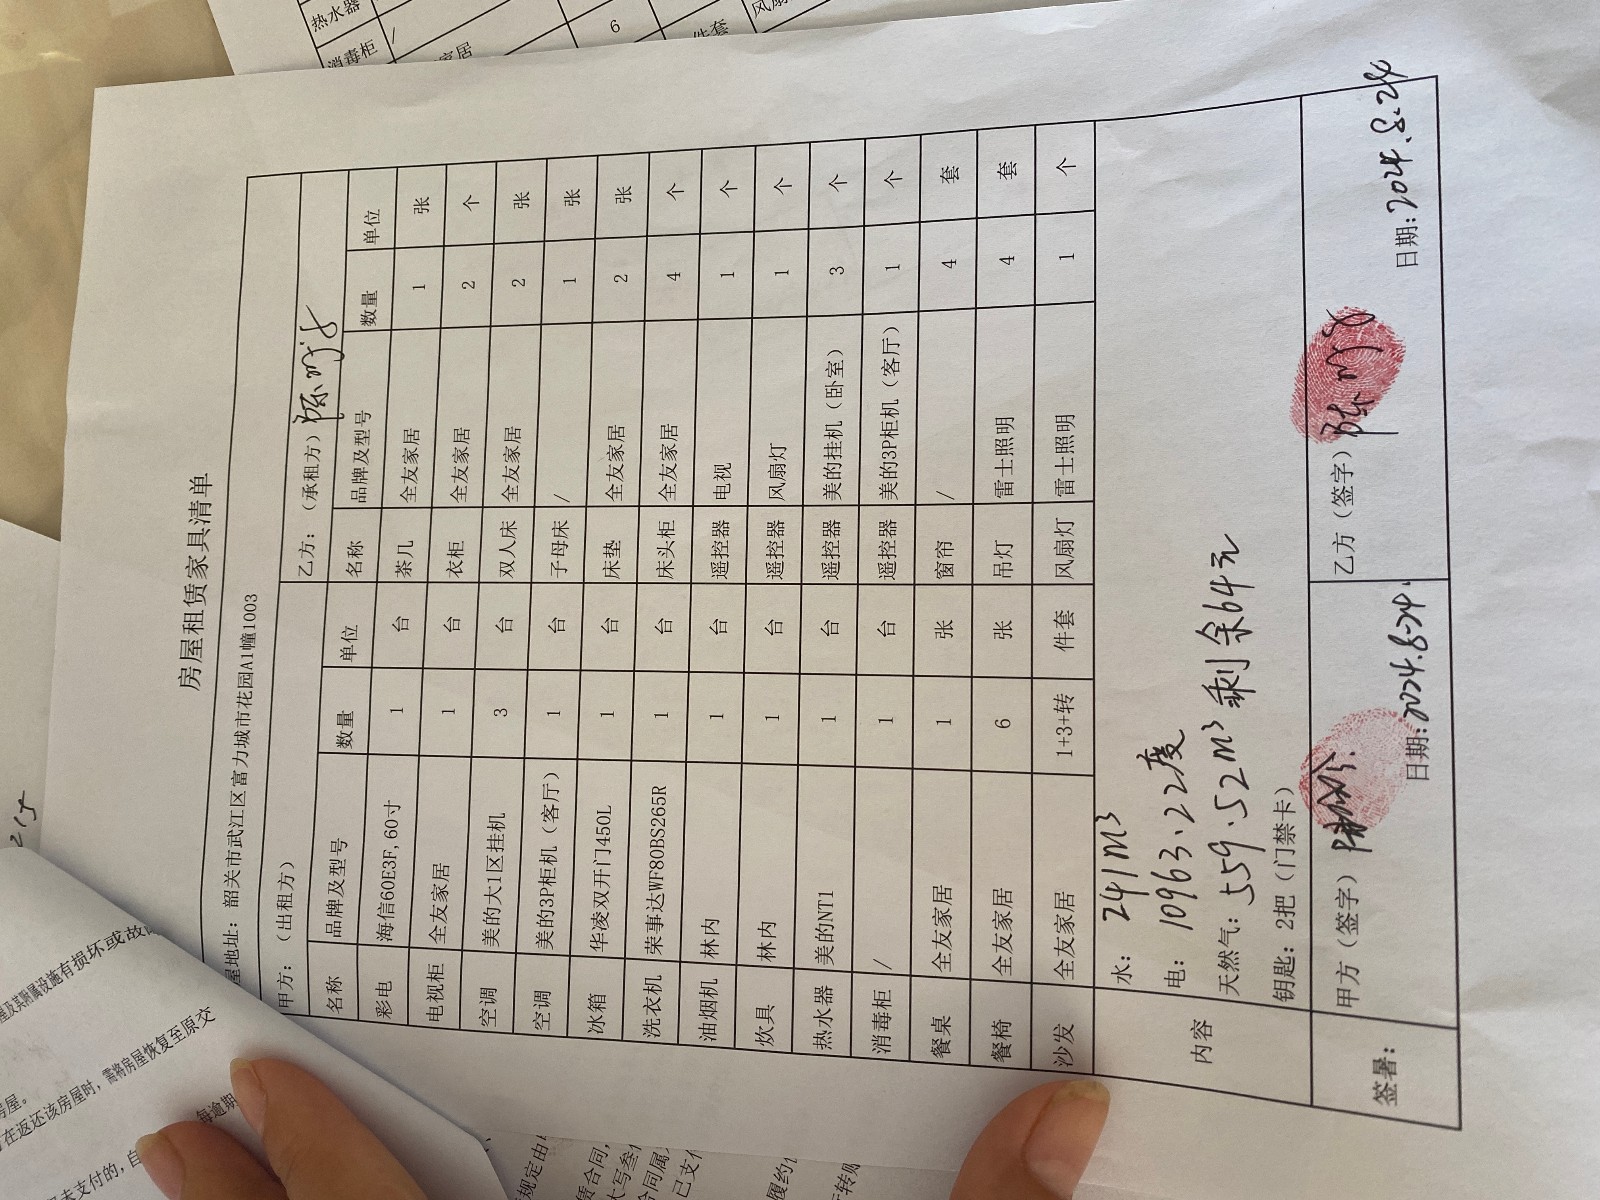 房屋租赁家具清单
屋地址：韶关市武江区富力城市花园A1幢1003
甲方：（出租方） 乙方：（承租方）
名称 品牌及型号 数量 单位 名称 品牌及型号 数量 单位
彩电 海信60E3F,60寸 1 台 茶几 全友家居 1 张
电视柜 全友家居 1 台 衣柜 全友家居 2 个
空调 美的大1区挂机 3 台 双人床 全友家居 2 张
空调 美的3P柜机（客厅） 1 台 子母床 / 1 张
冰箱 华凌双开门450L 1 台 床垫 全友家居 2 张
洗衣机 荣事达WF80BS265R 1 台 床头柜 全友家居 4 个
油烟机 林内 1 台 遥控器 电视 1 个
炊具 林内 1 台 遥控器 风扇灯 1 个
热水器 美的NT1 1 台 遥控器 美的挂机（卧室） 3 个
消毒柜 / 1 台 遥控器 美的3P柜机（客厅） 1 个
餐桌 全友家居 1 张 窗帘 / 4 套
餐椅 全友家居 6 张 吊灯 雷士照明 4 套
沙发 全友家居 1+3+转 件套 风扇灯 雷士照明 1 个
内容
水： 241m³
电： 10963.22度
天然气： 559.52m³ 剩余64元
钥匙：2把（门禁卡）
签署： 甲方（签字） 日期：2024.8-24. 乙方（签字） 日期：2024.8.24
热水器
消毒柜 /
家居
6
件套
215
屋及其附属设施有损坏或故
房屋。
在返还该房屋时，需将房屋恢复至原交
未支付的，自
每逾期
规定由
赁合同，
大写叁
合同属
已支付
履约
转账